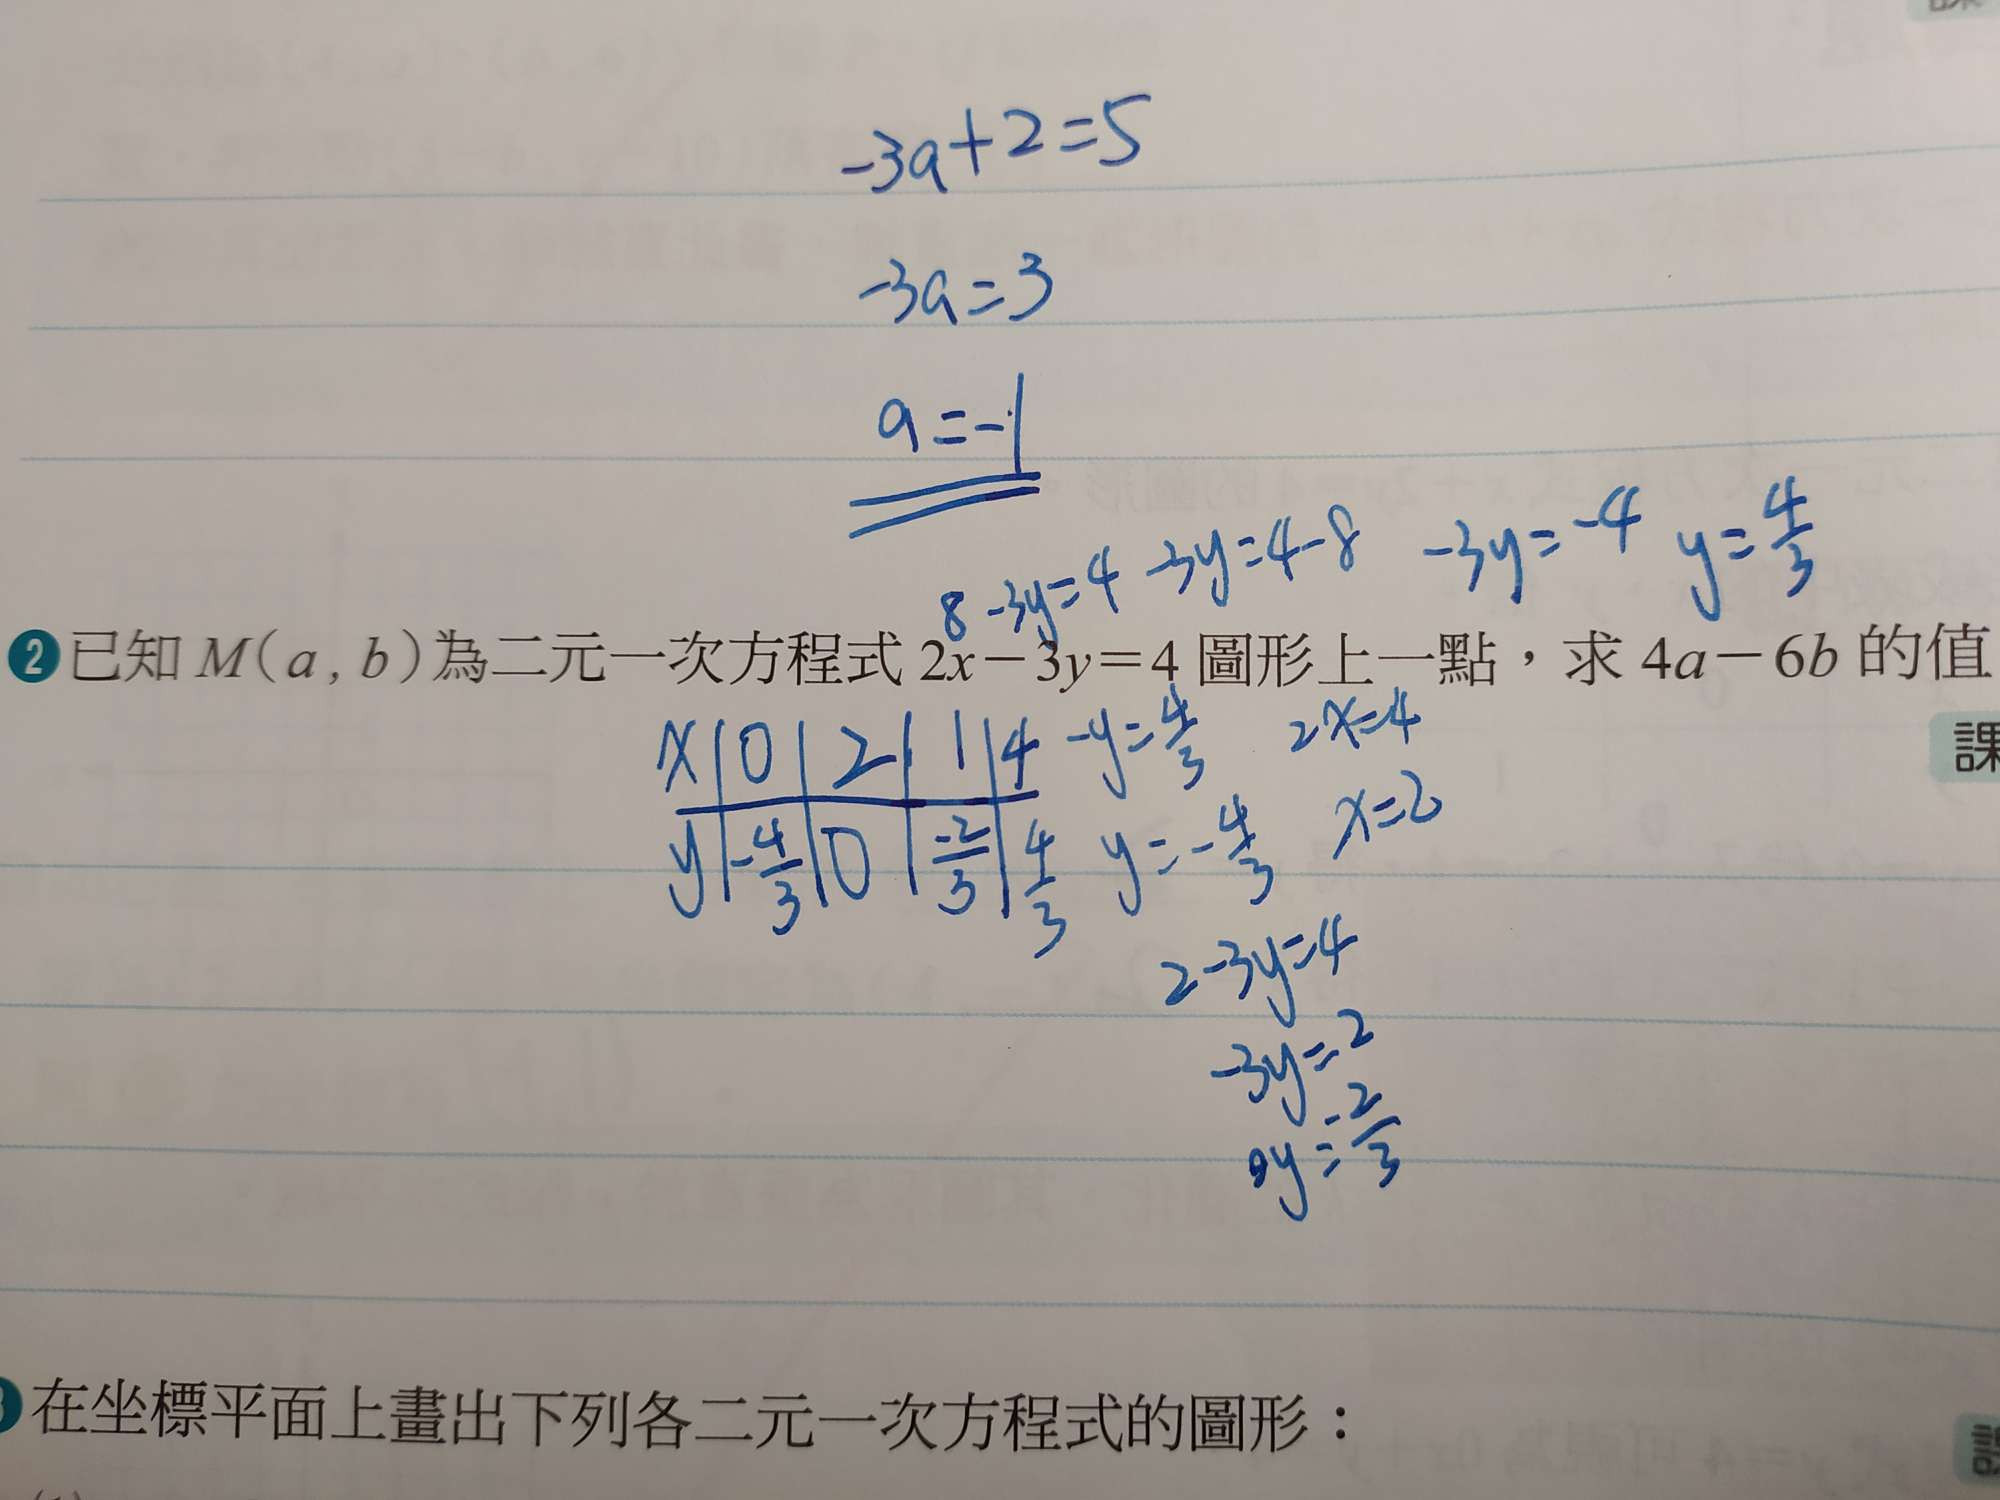 -3a+2=5
-3a=3
a=-1
8-3y=4 -3y=4-8 -3y=-4 y=4/3
2 已知 M(a, b)為二元一次方程式 2x-3y=4 圖形上一點，求 4a-6b 的值
課
x 0 2 1 4 -y=4/3 2x=4
y -4/3 0 -2/3 4/3 y=-4/3 x=2
2-3y=4
-3y=2
y=-2/3
3 在坐標平面上畫出下列各二元一次方程式的圖形：